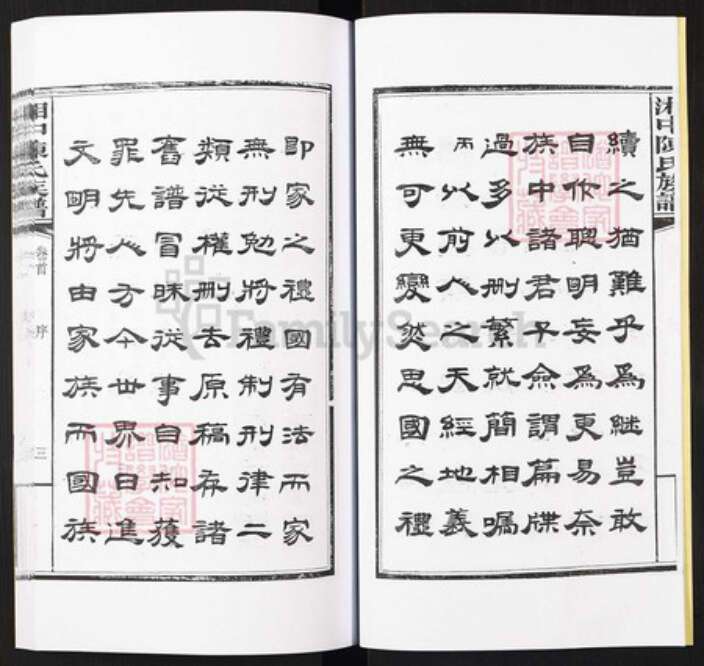 湘中陳氏族譜
續之猶難乎爲継豈敢
自作聰明妄爲更易奈
族中諸君子僉謂篇牒
過多以刪繁就簡相囑
丙以前人之天經地義
無可更變然思國之禮
即家之禮國有法而家
無刑勉將禮制刑律二
類從權刪去原稿存諸
舊譜冒昧從事自知獲
罪先人方今世界日進
文明將由家族而國族
湘中陳氏族譜
卷首
序
三
FamilySearch